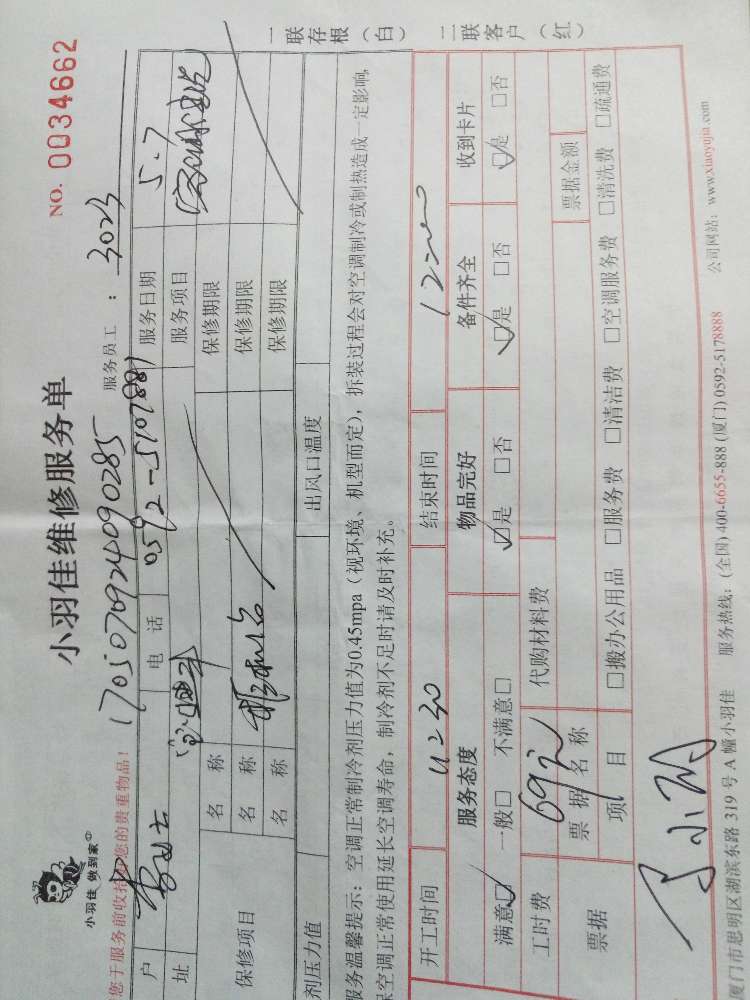 小羽佳 做到家
小羽佳维修服务单
NO. 0034662
您于服务前收拾好您的贵重物品！
1705070924090285
服务员工：3023
户
电 话
0592-5107881
服务日期
5.7
址
服务项目
保修项目
名 称
保修期限
名 称
保修期限
名 称
保修期限
剂压力值
出风口温度
服务温馨提示：空调正常制冷剂压力值为0.45mpa（视环境、机型而定），拆装过程会对空调制冷或制热造成一定影响,
空调正常使用延长空调寿命，制冷剂不足时请及时补充。
开工时间
结束时间
服务态度
物品完好
备件齐全
收到卡片
满意☑ 一般□ 不满意□
☑是 □否
☑是 □否
☑是 □否
工时费
69元
代购材料费
票据
票据名称
票据金额
项 目
□搬办公用品 □服务费 □清洁费 □空调服务费 □清洗费 □疏通费
厦门市思明区湖滨东路 319 号 A 幢小羽佳 服务热线：(全国) 400-6655-888 (厦门) 0592-5178888 公司网站：www.xiaoyujia.com
一联存根（白） 二联客户（红）